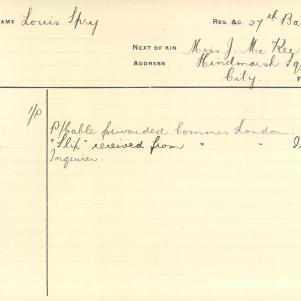 NAME Louis Spry REG. &C. 27th Ba
NEXT OF KIN Miss J. Mc Kee
ADDRESS Hindmarsh Sq
City.
1/0 P/Cable forwarded Commrs London.
"Slip" received from " "
Inquirer.